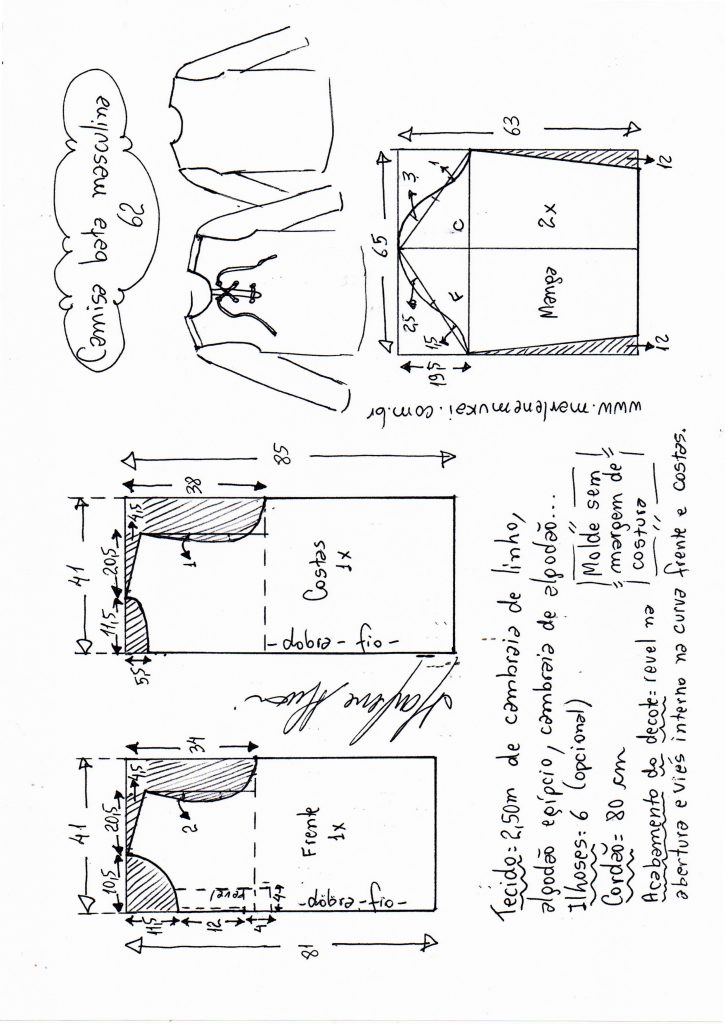 Camisa bata masculina
62
41
10,5
20,5
4,5
34
11,5
12
4
4
2
revel
Frente
1x
-fio-dobra-
81
41
11,5
20,5
4,5
38
5,5
1
Costas
1x
-fio-dobra-
85
Marlene Mukai
65
63
19,5
2,5
1,5
3
1
F
C
Manga
2x
12
12
www.marlenemukai.com.br
Tecido= 2,50m de cambraia de linho,
algodão egípcio, cambraia de algodão...
Ilhoses= 6 (opcional)
Cordão= 80 cm
Acabamento do decote= revel na
abertura e viés interno na curva frente e costas.
Molde sem
margem de
costura